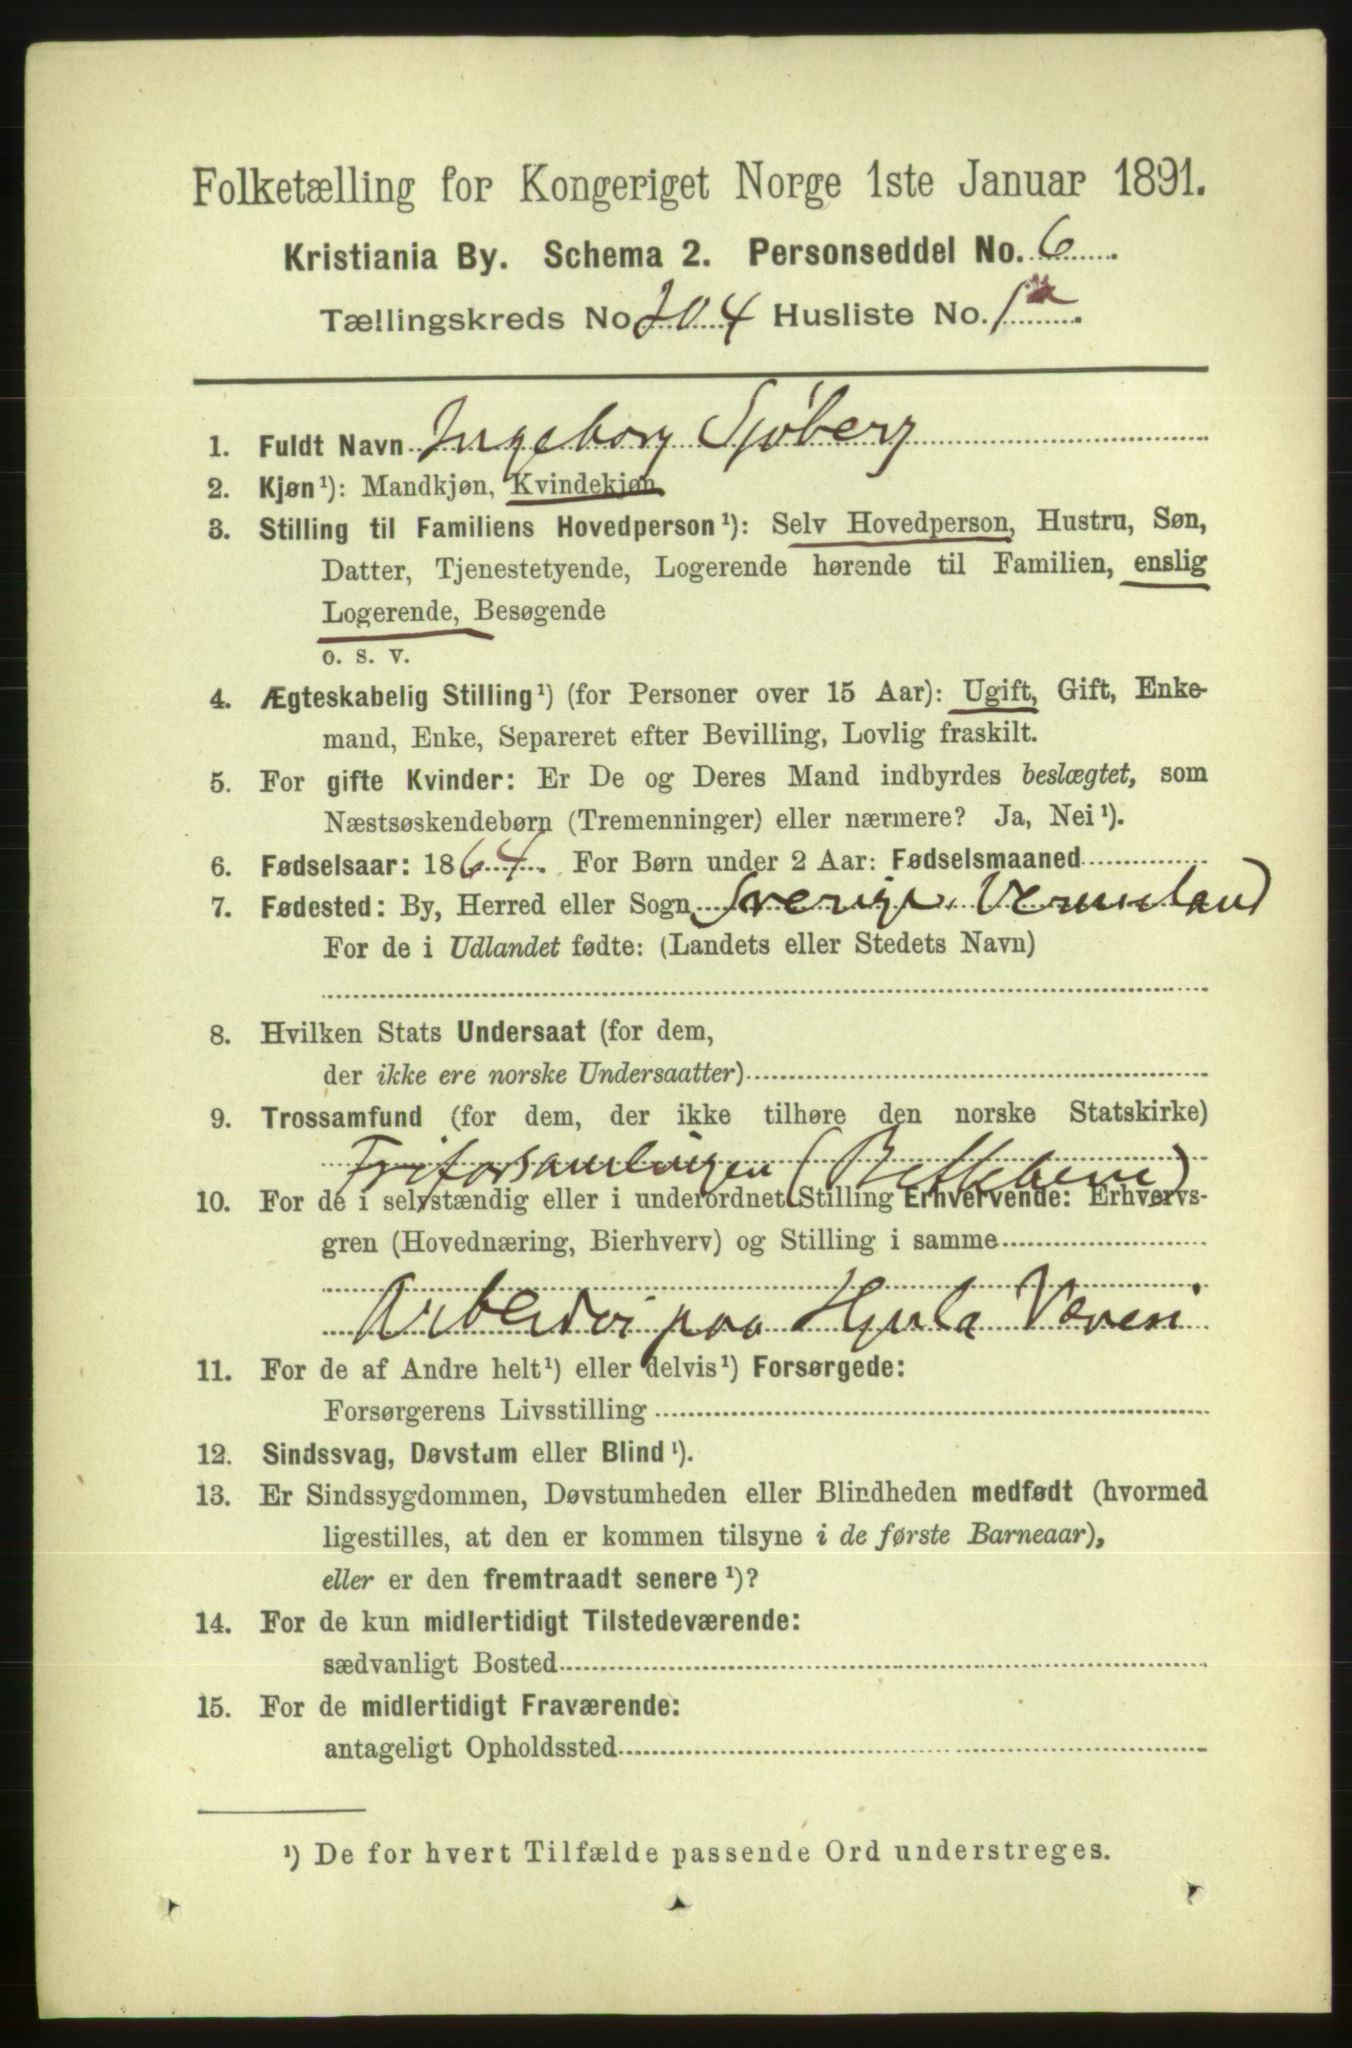 Folketælling for Kongeriget Norge 1ste Januar 1891.
Kristiania By. Schema 2. Personseddel No. 6
Tællingskreds No 204 Husliste No. 1a
1. Fuldt Navn Ingeborg Sjöberg
2. Kjøn¹): Mandkjøn, Kvindekjøn
3. Stilling til Familiens Hovedperson¹): Selv Hovedperson, Hustru, Søn,
Datter, Tjenestetyende, Logerende hørende til Familien, enslig
Logerende, Besøgende
o. s. v.
4. Ægteskabelig Stilling¹) (for Personer over 15 Aar): Ugift, Gift, Enke-
mand, Enke, Separeret efter Bevilling, Lovlig fraskilt.
5. For gifte Kvinder: Er De og Deres Mand indbyrdes beslægtet, som
Næstsøskendebørn (Tremenninger) eller nærmere? Ja, Nei¹).
6. Fødselsaar: 1864. For Børn under 2 Aar: Fødselsmaaned
7. Fødested: By, Herred eller Sogn Sverige, Vermeland
For de i Udlandet fødte: (Landets eller Stedets Navn)
8. Hvilken Stats Undersaat (for dem,
der ikke ere norske Undersaatter)
9. Trossamfund (for dem, der ikke tilhøre den norske Statskirke)
Friforsamlingen (Betlehem)
10. For de i selvstændig eller i underordnet Stilling Erhvervende: Erhvervs-
gren (Hovednæring, Bierhverv) og Stilling i samme
Arbeider paa Hjula Væveri
11. For de af Andre helt¹) eller delvis¹) Forsørgede:
Forsørgerens Livsstilling
12. Sindssvag, Døvstum eller Blind¹).
13. Er Sindssygdommen, Døvstumheden eller Blindheden medfødt (hvormed
ligestilles, at den er kommen tilsyne i de første Barneaar),
eller er den fremtraadt senere¹)?
14. For de kun midlertidigt Tilstedeværende:
sædvanligt Bosted
15. For de midlertidigt Fraværende:
antageligt Opholdssted
¹) De for hvert Tilfælde passende Ord understreges.